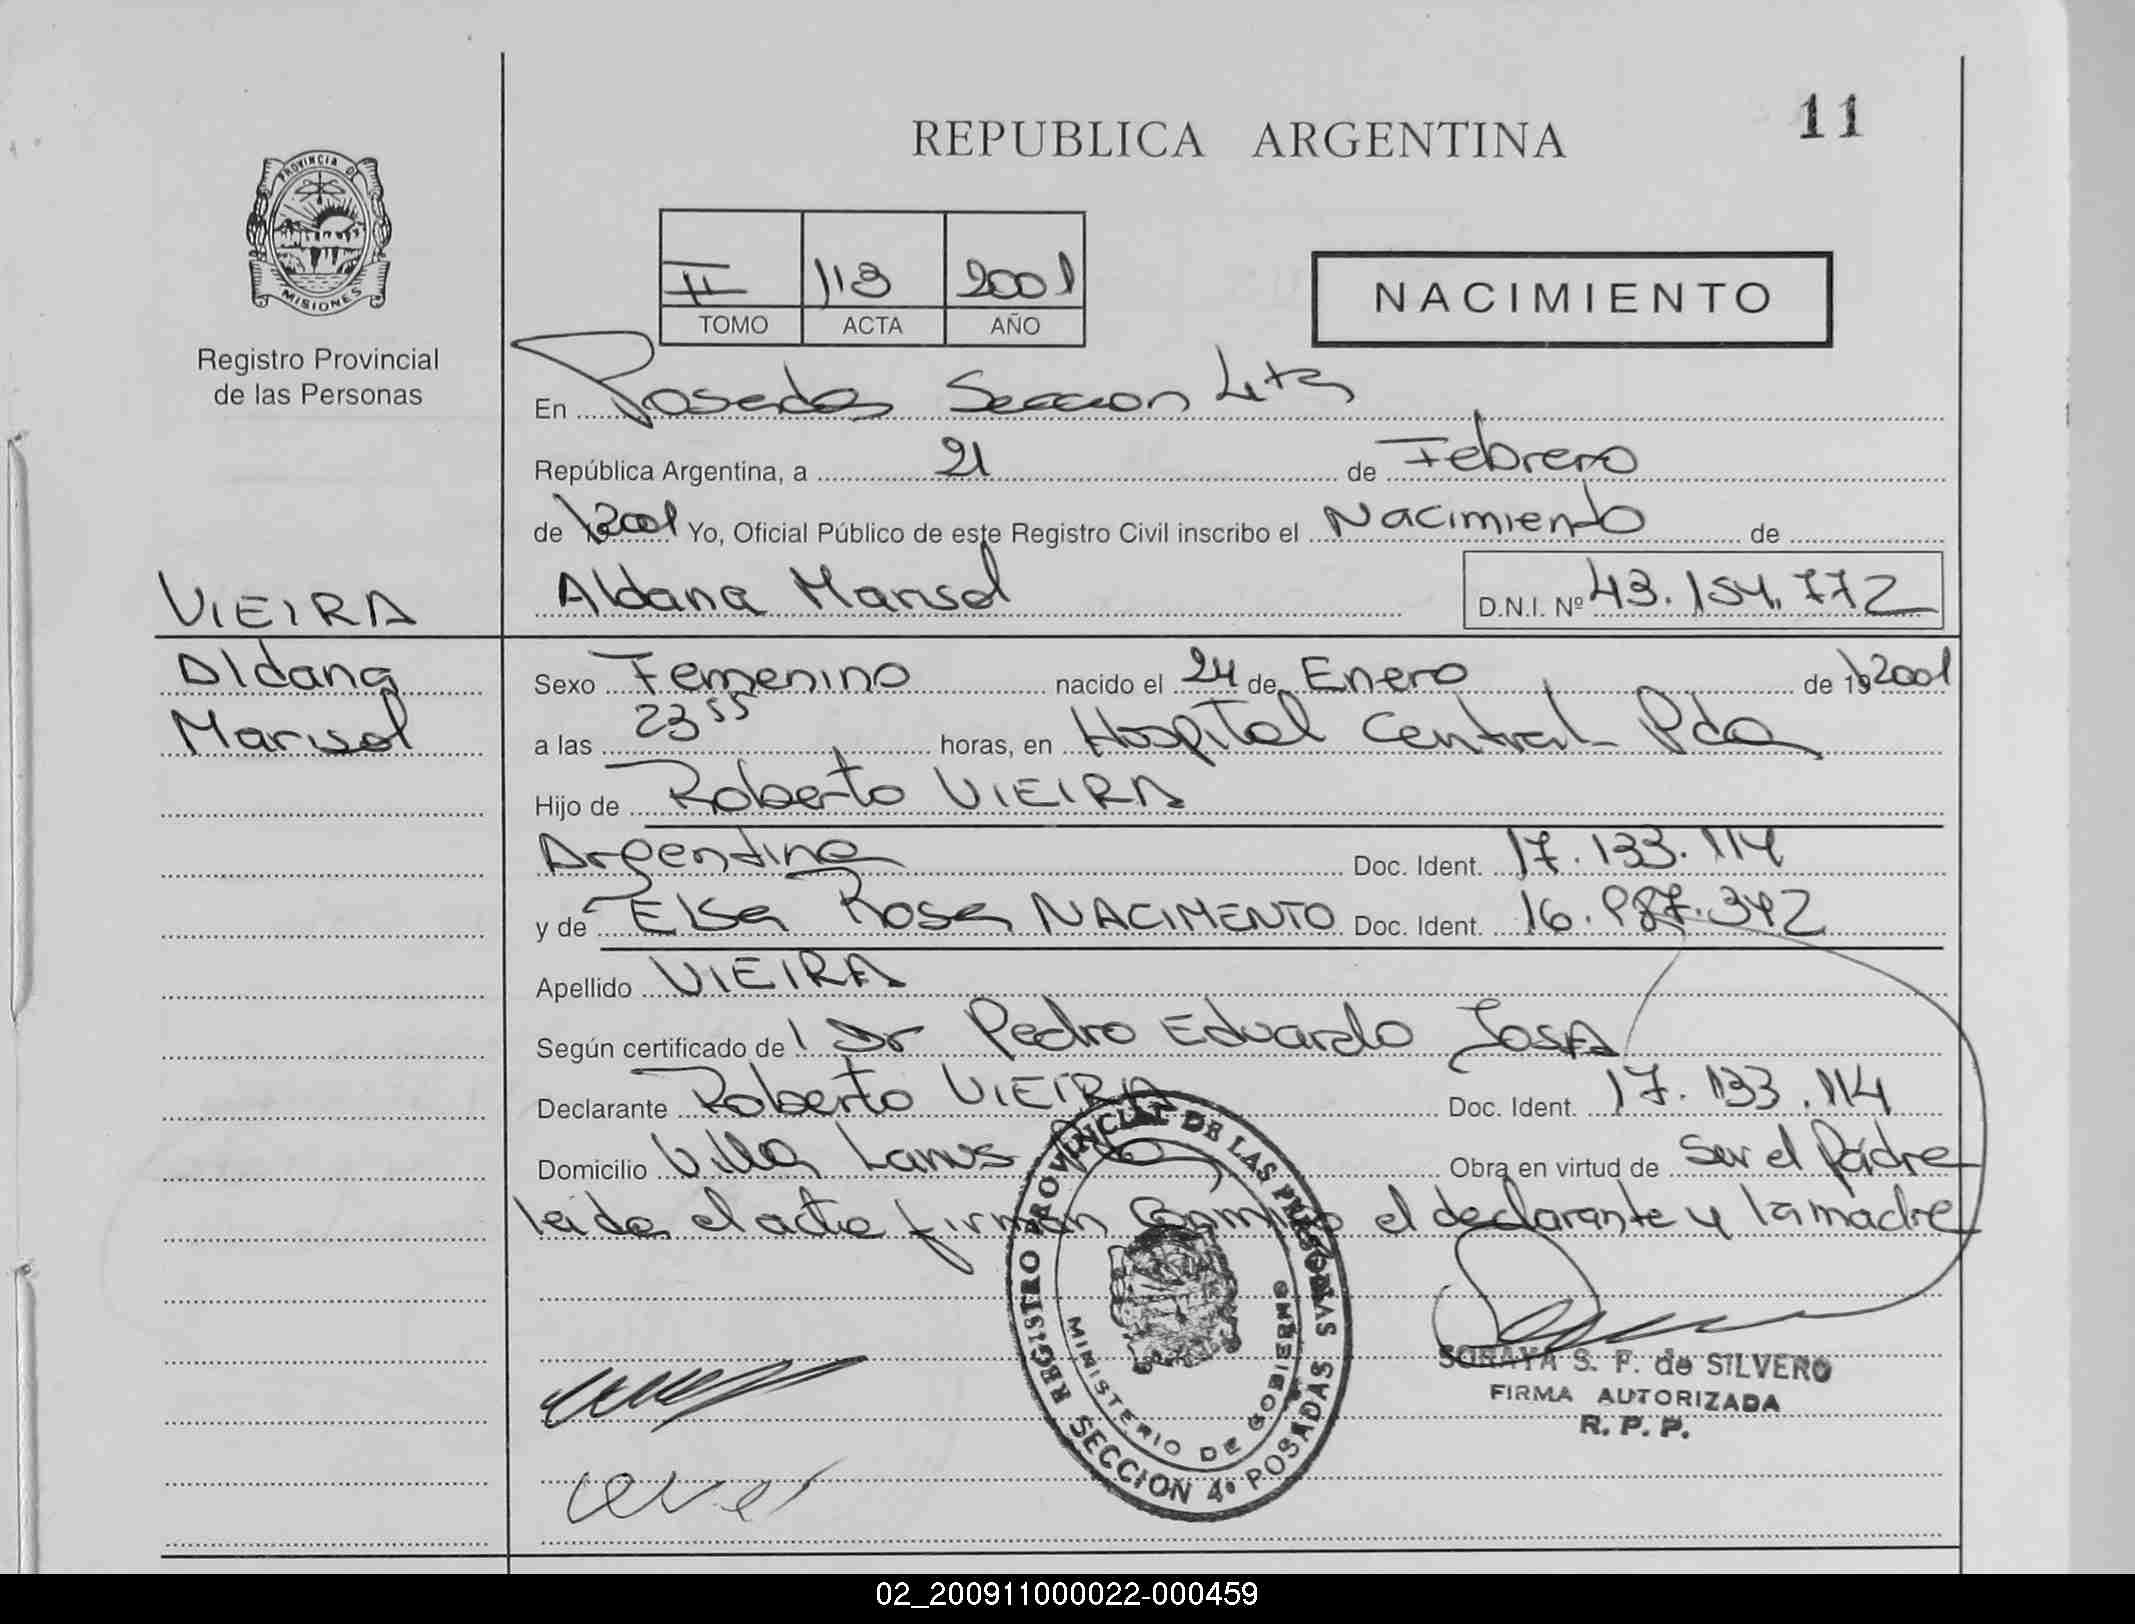 11
REPUBLICA ARGENTINA
PROVINCIA DE
MISIONES
Registro Provincial
de las Personas
II 113 2001
TOMO ACTA AÑO
NACIMIENTO
En Posadas Seccion 4ta
República Argentina, a 21 de Febrero
de 2001 Yo, Oficial Público de este Registro Civil inscribo el Nacimiento de
VIEIRA
Aldana Marisol
D.N.I. Nº 43.154.772
Aldana
Marisol
Sexo Femenino nacido el 24 de Enero de 19 2001
a las 23 55 horas, en Hospital Central Pdas
Hijo de Roberto VIEIRA
Argentina Doc. Ident. 17.133.114
y de Elsa Rosa NACIMENTO Doc. Ident. 16.987.342
Apellido VIEIRA
Según certificado de l Dr Pedro Eduardo
Declarante Roberto VIEIRA Doc. Ident. 17.133.114
Domicilio Villa Lanus Pdas Obra en virtud de Ser el Padre
leida el acta firman Conmigo el declarante y la madre
REGISTRO PROVINCIAL DE LAS PERSONAS
MINISTERIO DE GOBIERNO
SECCION 4º POSADAS
SORAYA S. P. de SILVERO
FIRMA AUTORIZADA
R. P. P.
02_200911000022-000459